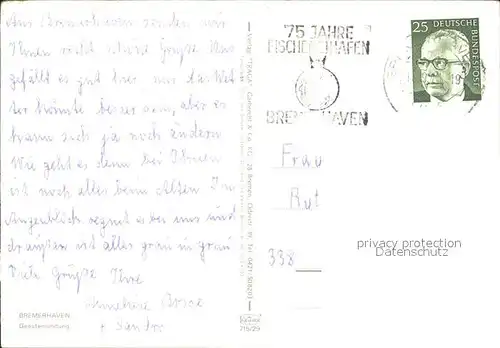 Aus Bremerhaven senden wir
Ihnen recht schöne Grüße. Uns
gefällt es gut hier nur das Wet
ter könnte besser sein, aber es
kann sich ja noch ändern
Wie geht es denn bei Ihnen
ist noch alles beim Alten. Im
Augenblick regnet es bei uns und
draußen ist alles grau in grau
Viele Grüße Ihre
Anneliese
+ Sandra
BREMERHAVEN
Geestemündung
715/29
75 JAHRE
FISCHEREIHAFEN
BREMERHAVEN
25 DEUTSCHE
BUNDESPOST
Frau
Rut
338
privacy protection
Datenschutz